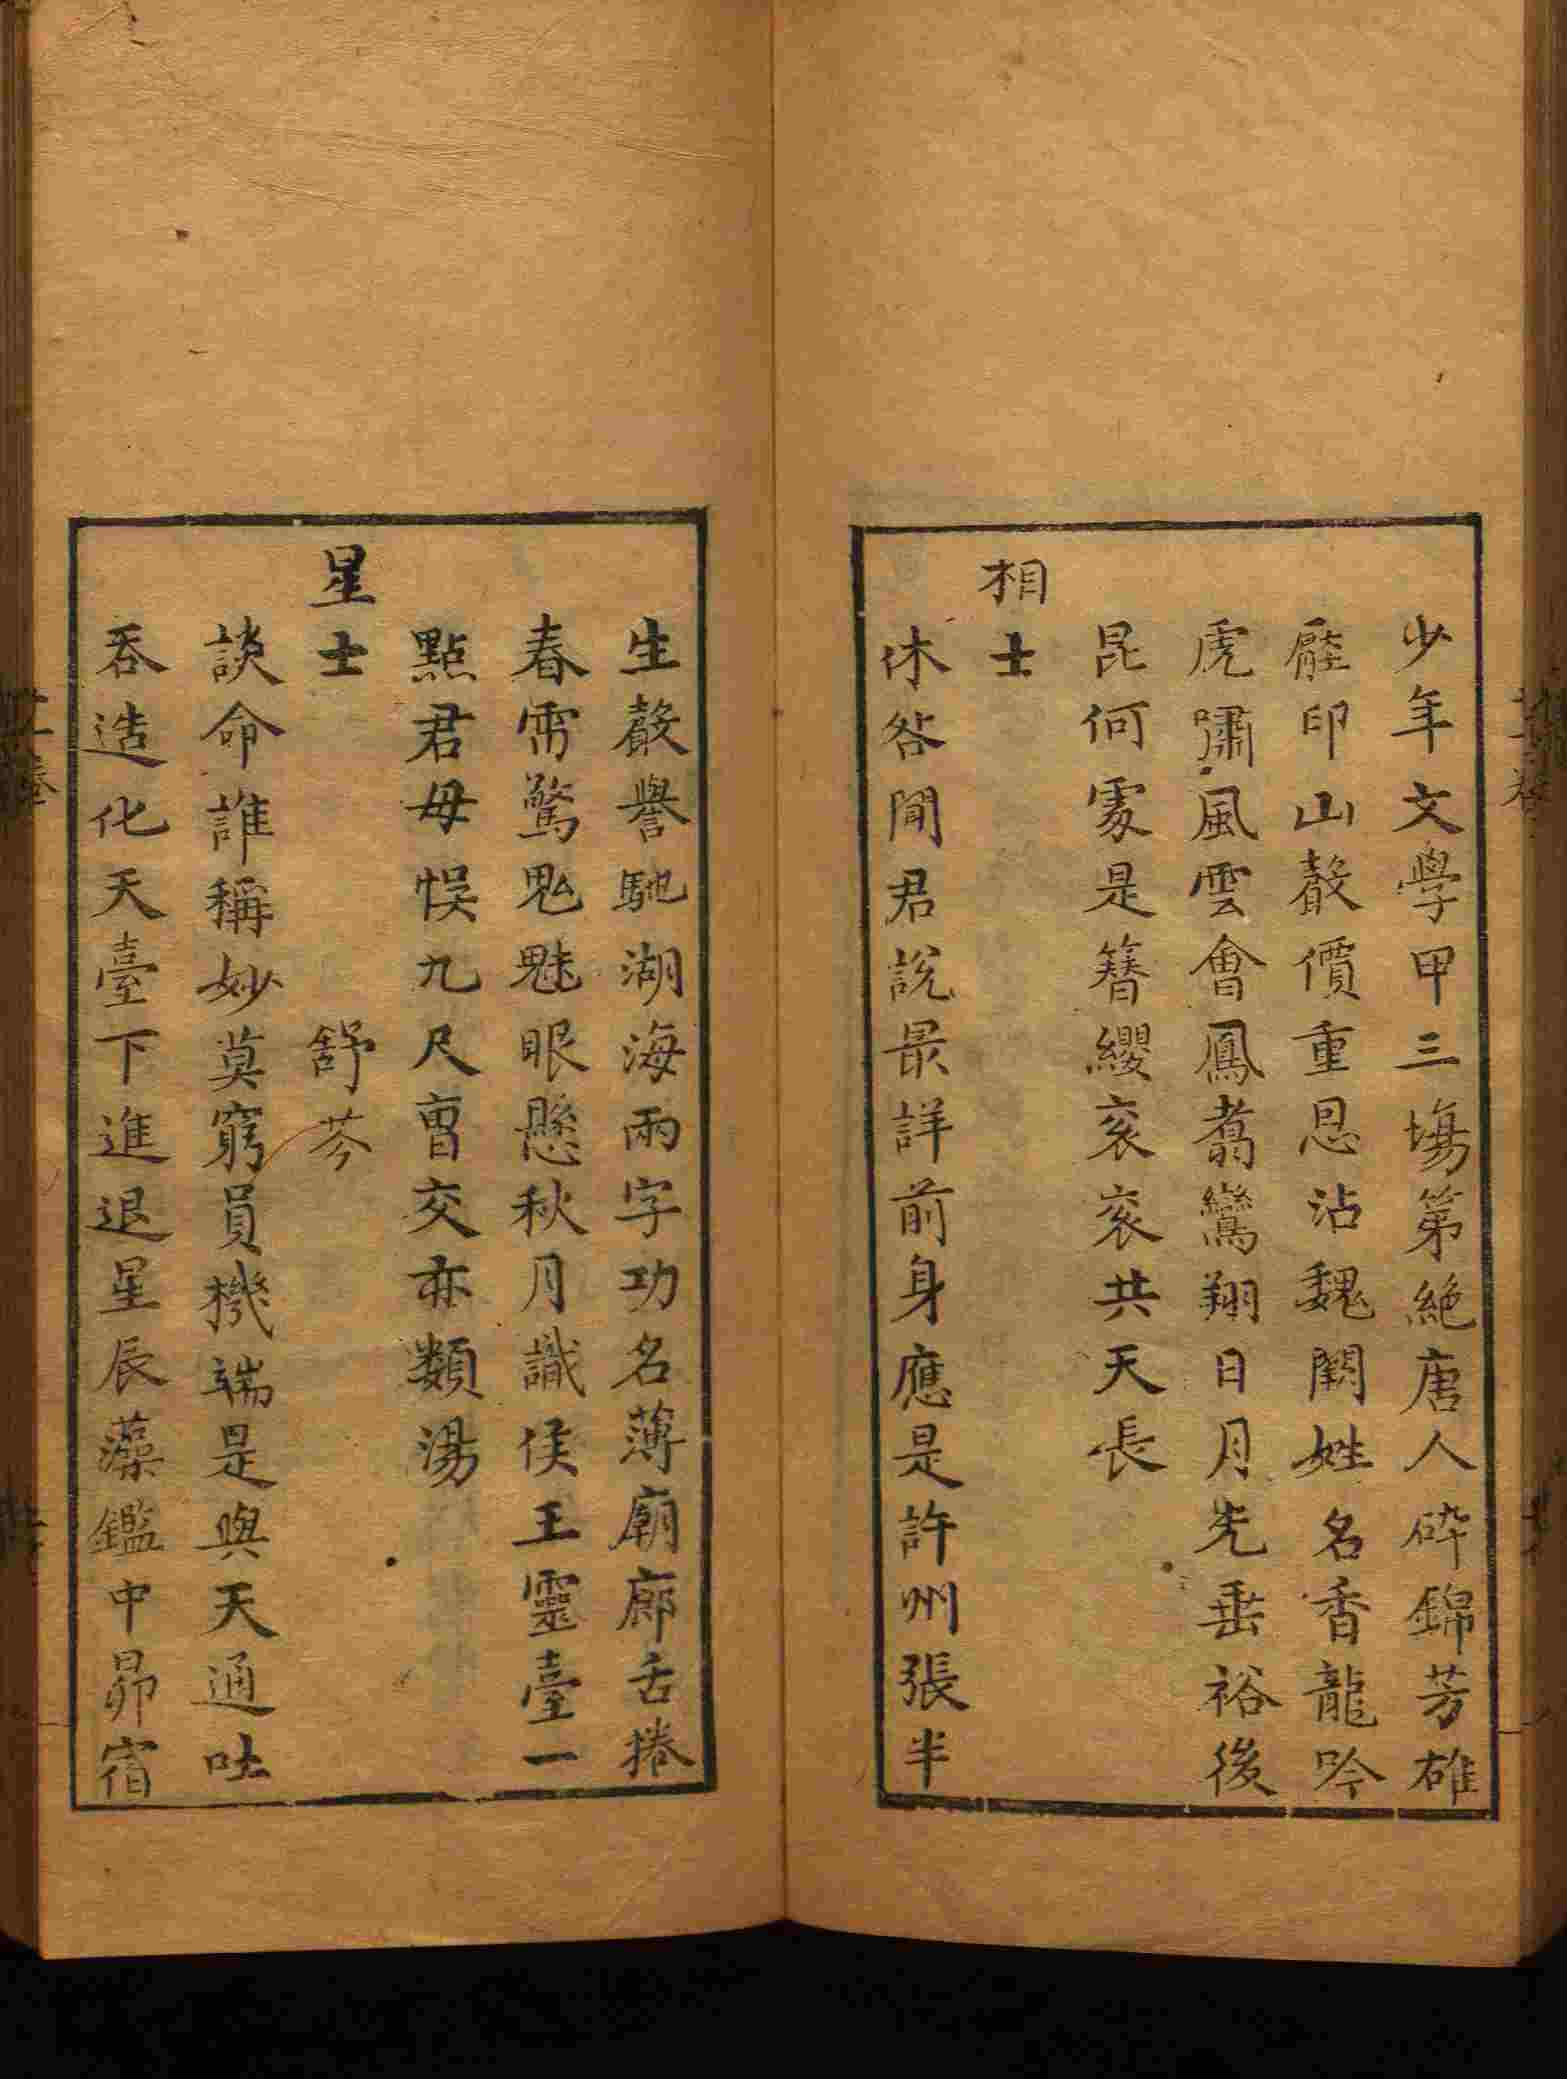 少年文學甲三場第絶唐人碎錦芳雄
壓印山聲價重恩沾魏闕姓名香龍吟
虎嘯風雲會鳳翥鸞翔日月光垂裕後
昆何處是簪纓衮衮共天長
相士
休咎聞君說最詳前身應是許州張半
生聲譽馳湖海兩字功名薄廟廊舌捲
春雷驚鬼魅眼懸秋月識侯王靈臺一
點君毋悮九尺曹交亦類湯
星士　舒芩
談命誰稱妙莫窮員機端是與天通吐
吞造化天臺下進退星辰藻鑑中昴宿